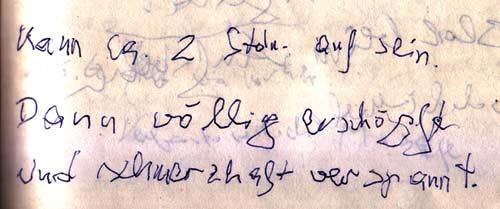 Kann ca. 2 Stdn. auf sein.
Dann völlig erschöpft
und schmerzhaft verspannt.